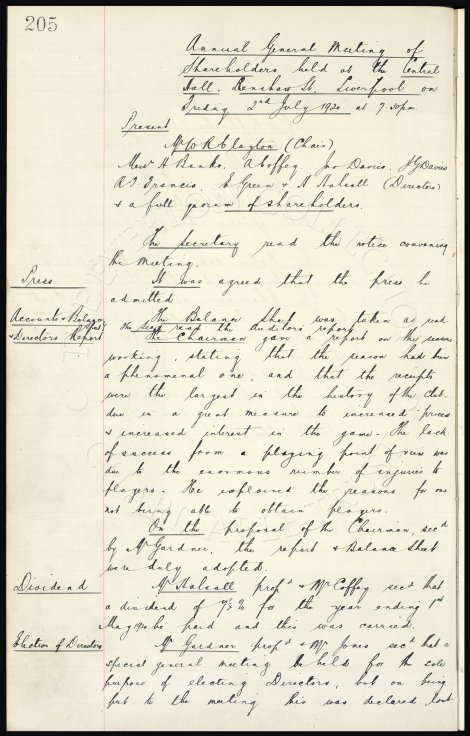 205
Annual General Meeting of
Shareholders held at the Central
Hall, Renshaw St, Liverpool on
Friday 2nd July 1920 at 7.30pm
Present
Mr W R Clayton (Chair)
Messrs A Banks. A Coffey Jno Davies. J G Davies
R T Francis. E Green & A Halsall (Directors)
& a full quorum of shareholders.
The Secretary read the notice convening
the Meeting.
Press
It was agreed that the press be
admitted
Accounts & Balance Sheet
& Directors Report
The Balance Sheet was taken as read
The Secty read the Auditors report
The Chairman gave a report on the seasons
working, stating that the season had been
a phenomenal one, and that the receipts
were the largest in the history of the Club.
due in a great measure to increased prices
& increased interest in the game. The lack
of success from a playing point of view was
due to the enormous number of injuries to
players. He explained the reasons for our
not being able to obtain players.
On the proposal of the Chairman, secd
by Mr Gardner, the report & Balance Sheet
were duly adopted.
Dividend
Mr Halsall propd & Mr Coffey secd that
a dividend of % for the year ending 1st
May 1920 be paid and this was carried.
Election of Directors
Mr Gardner propd & Mr Jones secd that a
special general meeting be held for the sole
purpose of electing Directors, but on being
put to the meeting this was declared lost